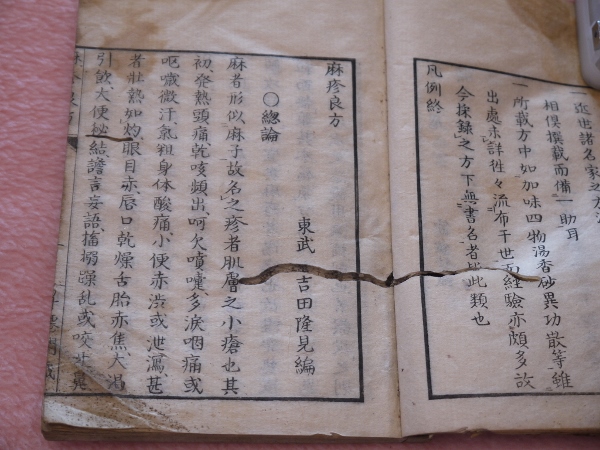 一近世諸名家之方法
相倶撰載而備一助耳
一所載方中如加味四物湯香砂異功散等雖
出處未詳牲々流布于世而経驗亦頗多故
今採錄之方下無書名者皆此類也
凡例終
麻疹良方
東武 吉田隆見編
〇總論
麻者形似麻子故名之疹者肌膚之小瘡也其
初發熱頭痛乾咳頻出呵欠噴嚏多淚咽痛或
嘔噦微汗氣粗身体酸痛小便赤渋或泄瀉甚
者壯熱如灼眼目赤唇口乾燥舌胎赤焦大渇
引飲大便秘結譫言妄語搐搦躁乱或咬牙